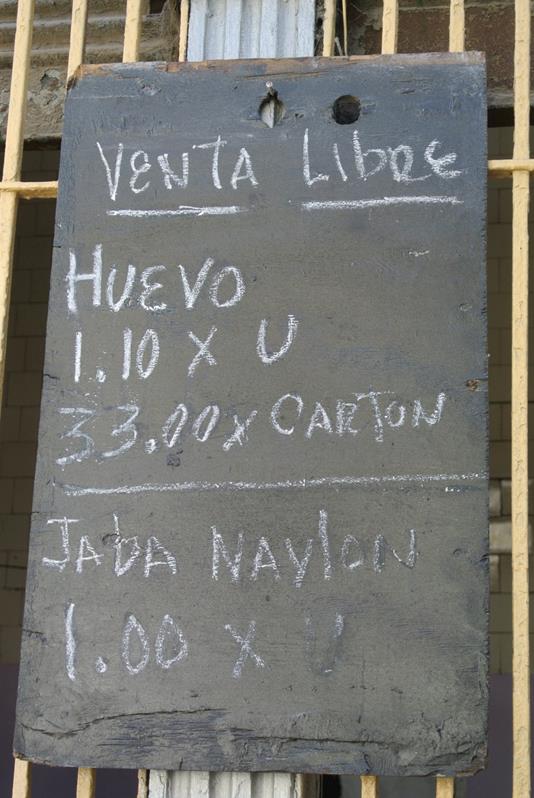 VENTA LIBRE
HUEVO
1.10 X U
33.00 X CARTON
JABA NAYLON
1.00 X U